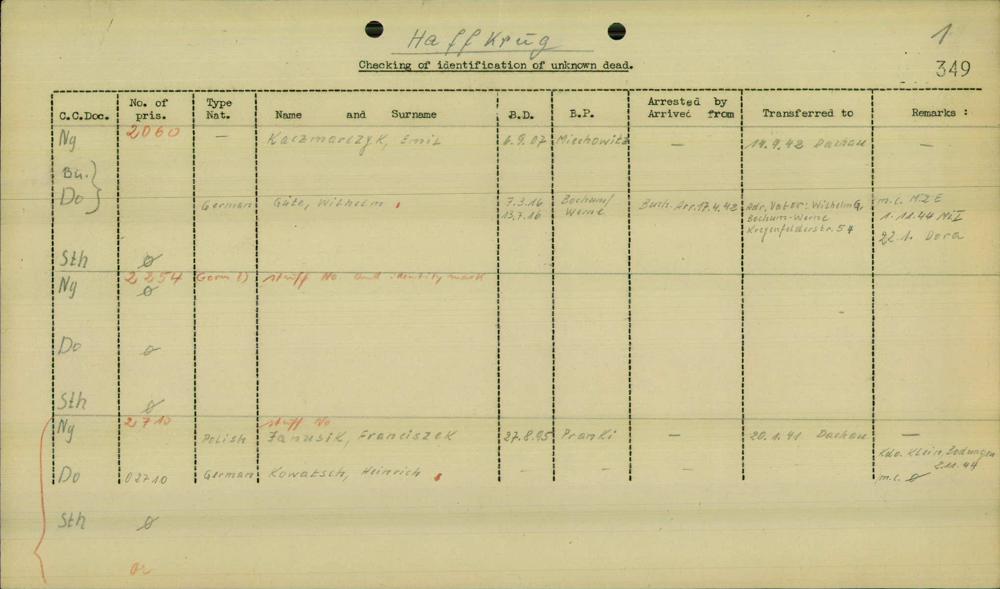 Haffkrug
1
Checking of identification of unknown dead.
349
C.C.Doc. No. of pris. Type Nat. Name and Surname B.D. B.P. Arrested by Arrived from Transferred to Remarks :
Ng 2060 — Kaczmarczyk, Emil 6.9.07 Miechowitz — 14.9.42 Dachau —
Bu.
Do German Güte, Wilhelm 7.3.16 Bochum/ Buch. Arr. 17.4.42 Adr. Vater: Wilhelm G. m.c.
13.7.16 Werne Bochum-Werne 1.11.44
54 22.1. Dora
Sth ø
2254 Germ stuff No and identity mark
Ng ø
Do ø
Sth ø
2710 stuff No
Ng Polish Janusik, Franciszek 27.8.95 Pranki — 20.1.41 Dachau —
Kdo. Klein, Bodungen
2.11.44
Do 02710 German Kowatsch, Heinrich - - - m.c. ø
Sth ø
or